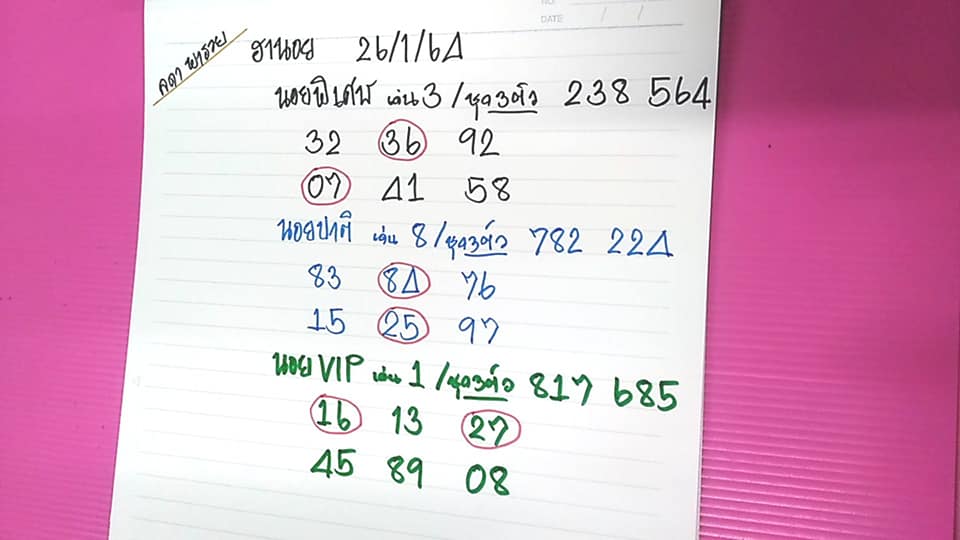 NO.
DATE / /
คดา พารวย
ฮานอย 26/1/64
นอยพิเศษ เด่น 3 / ชุด3ตัว 238 564
32 36 92
07 41 58
นอยปกติ เด่น 8 / ชุด3ตัว 782 224
83 84 76
15 25 97
นอย VIP เด่น 1 / ชุด3ตัว 817 685
16 13 27
45 89 08